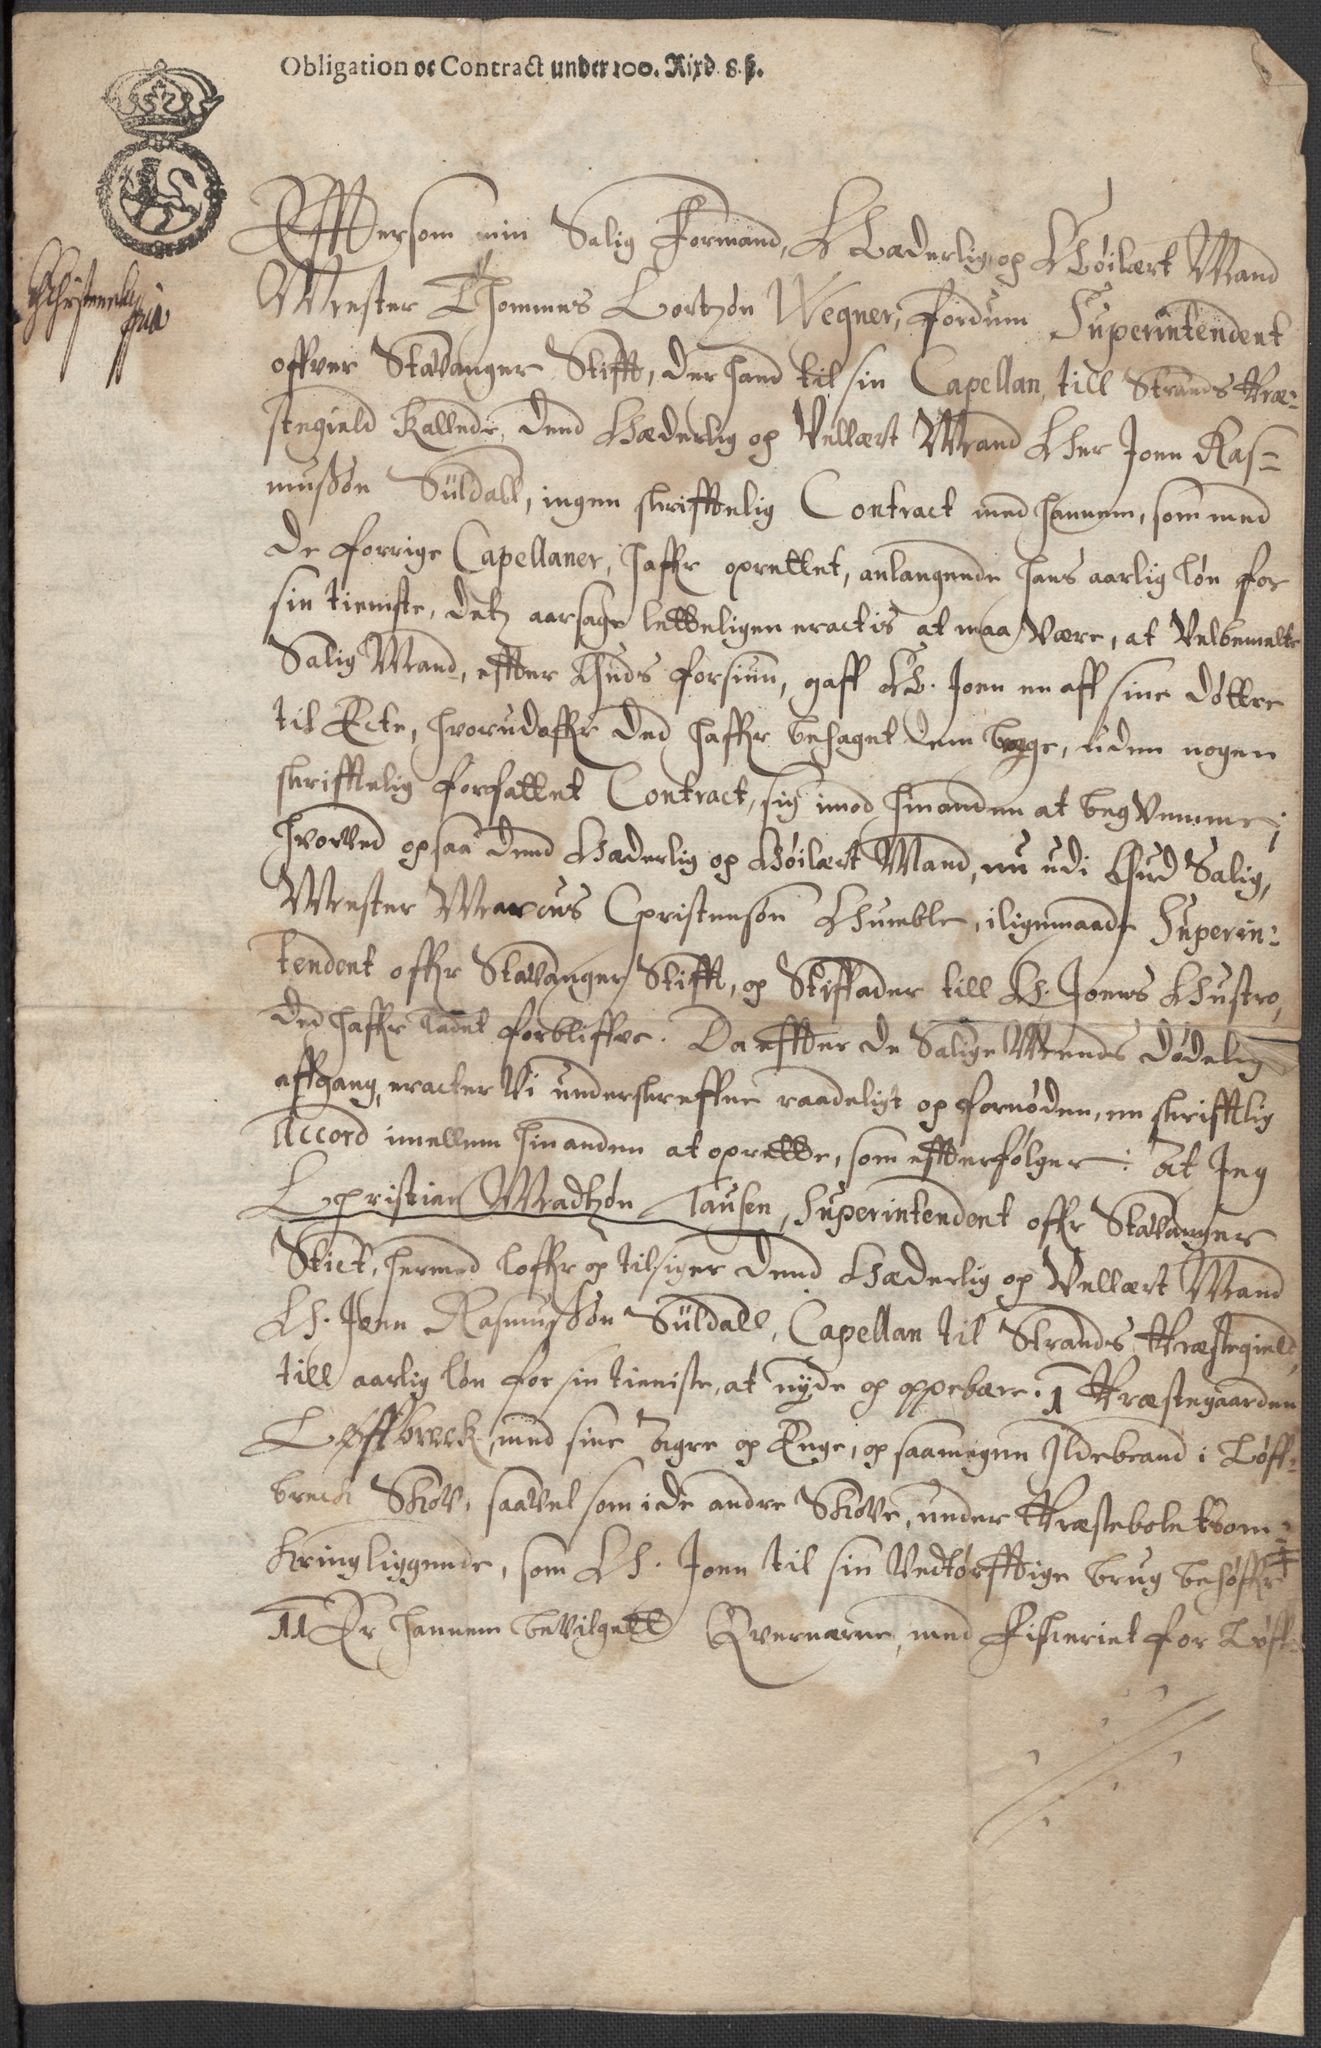 Obligation oc Contract under 100. Rixd. 8. ß.
Effttersom min Salig Formand, Hæderlig og Høilært Mand
Mester Thommes Cortzøn Wegner, Fordum Superintendent
offver Stavanger Stifft, der hand til sin Capellan, till Strands Præ-
stegield kallede, dend Hæderlig og Vellært Mand Her Joen Ras-
mußøn Süldall, ingen skrifftelig Contract med hannem, som med
de forrige Capellaner, haffr oprettet, anlangende hans aarlig løn for
sin tieniste, detz aarsage letteligen eractis at maa være, at Velbemelte
Salig Mand, effter Guds forsiun, gaff H. Joen en aff sine døttre
til Ecte, hvorudoffr ded haffr behaget dem begge, uden nogen
skrifftelig forfattet Contract, sig imod hinanden at beqvemme;
hvorved ogsaa dend Hæderlig og Høilært Mand, nu udi Gud Salig,
Mester Marcus Christensøn Humble, iligemaade Superin-
tendent offr Stavanger Stifft, og Stiffader till H. Joens Hustro,
ded haffr ladet forbliffve. Da effter de Salige Mends dødelig
affgang, eracter Vi underskreffne raadeligt og fornøden, en skrifftlig
Accord imellem hinanden at oprette, som effterfølger: At Jeg
Christian Madtzøn Tausen, Superintendent offr Stavanger
Stict, hermed loffr og tilsiger dend Hæderlig og Vellært Mand
H. Joen Rasmußøn Süldall, Capellan til Strands Præstegield,
till aarlig løn for sin tieniste, at nyde og oppebære. 1 Præstegaarden
Løffbreck med sine Agre og Enge, og saamegen Ildebrand i Løff-
breck Skov, saavel som i de andre Skove, under Præstebolet om-
kringliggende, som H. Joen til sin Nedtørfftige brug behøffr
11 Er hannem bevilgett Qvernerne, med Fiskeriet for Løff-